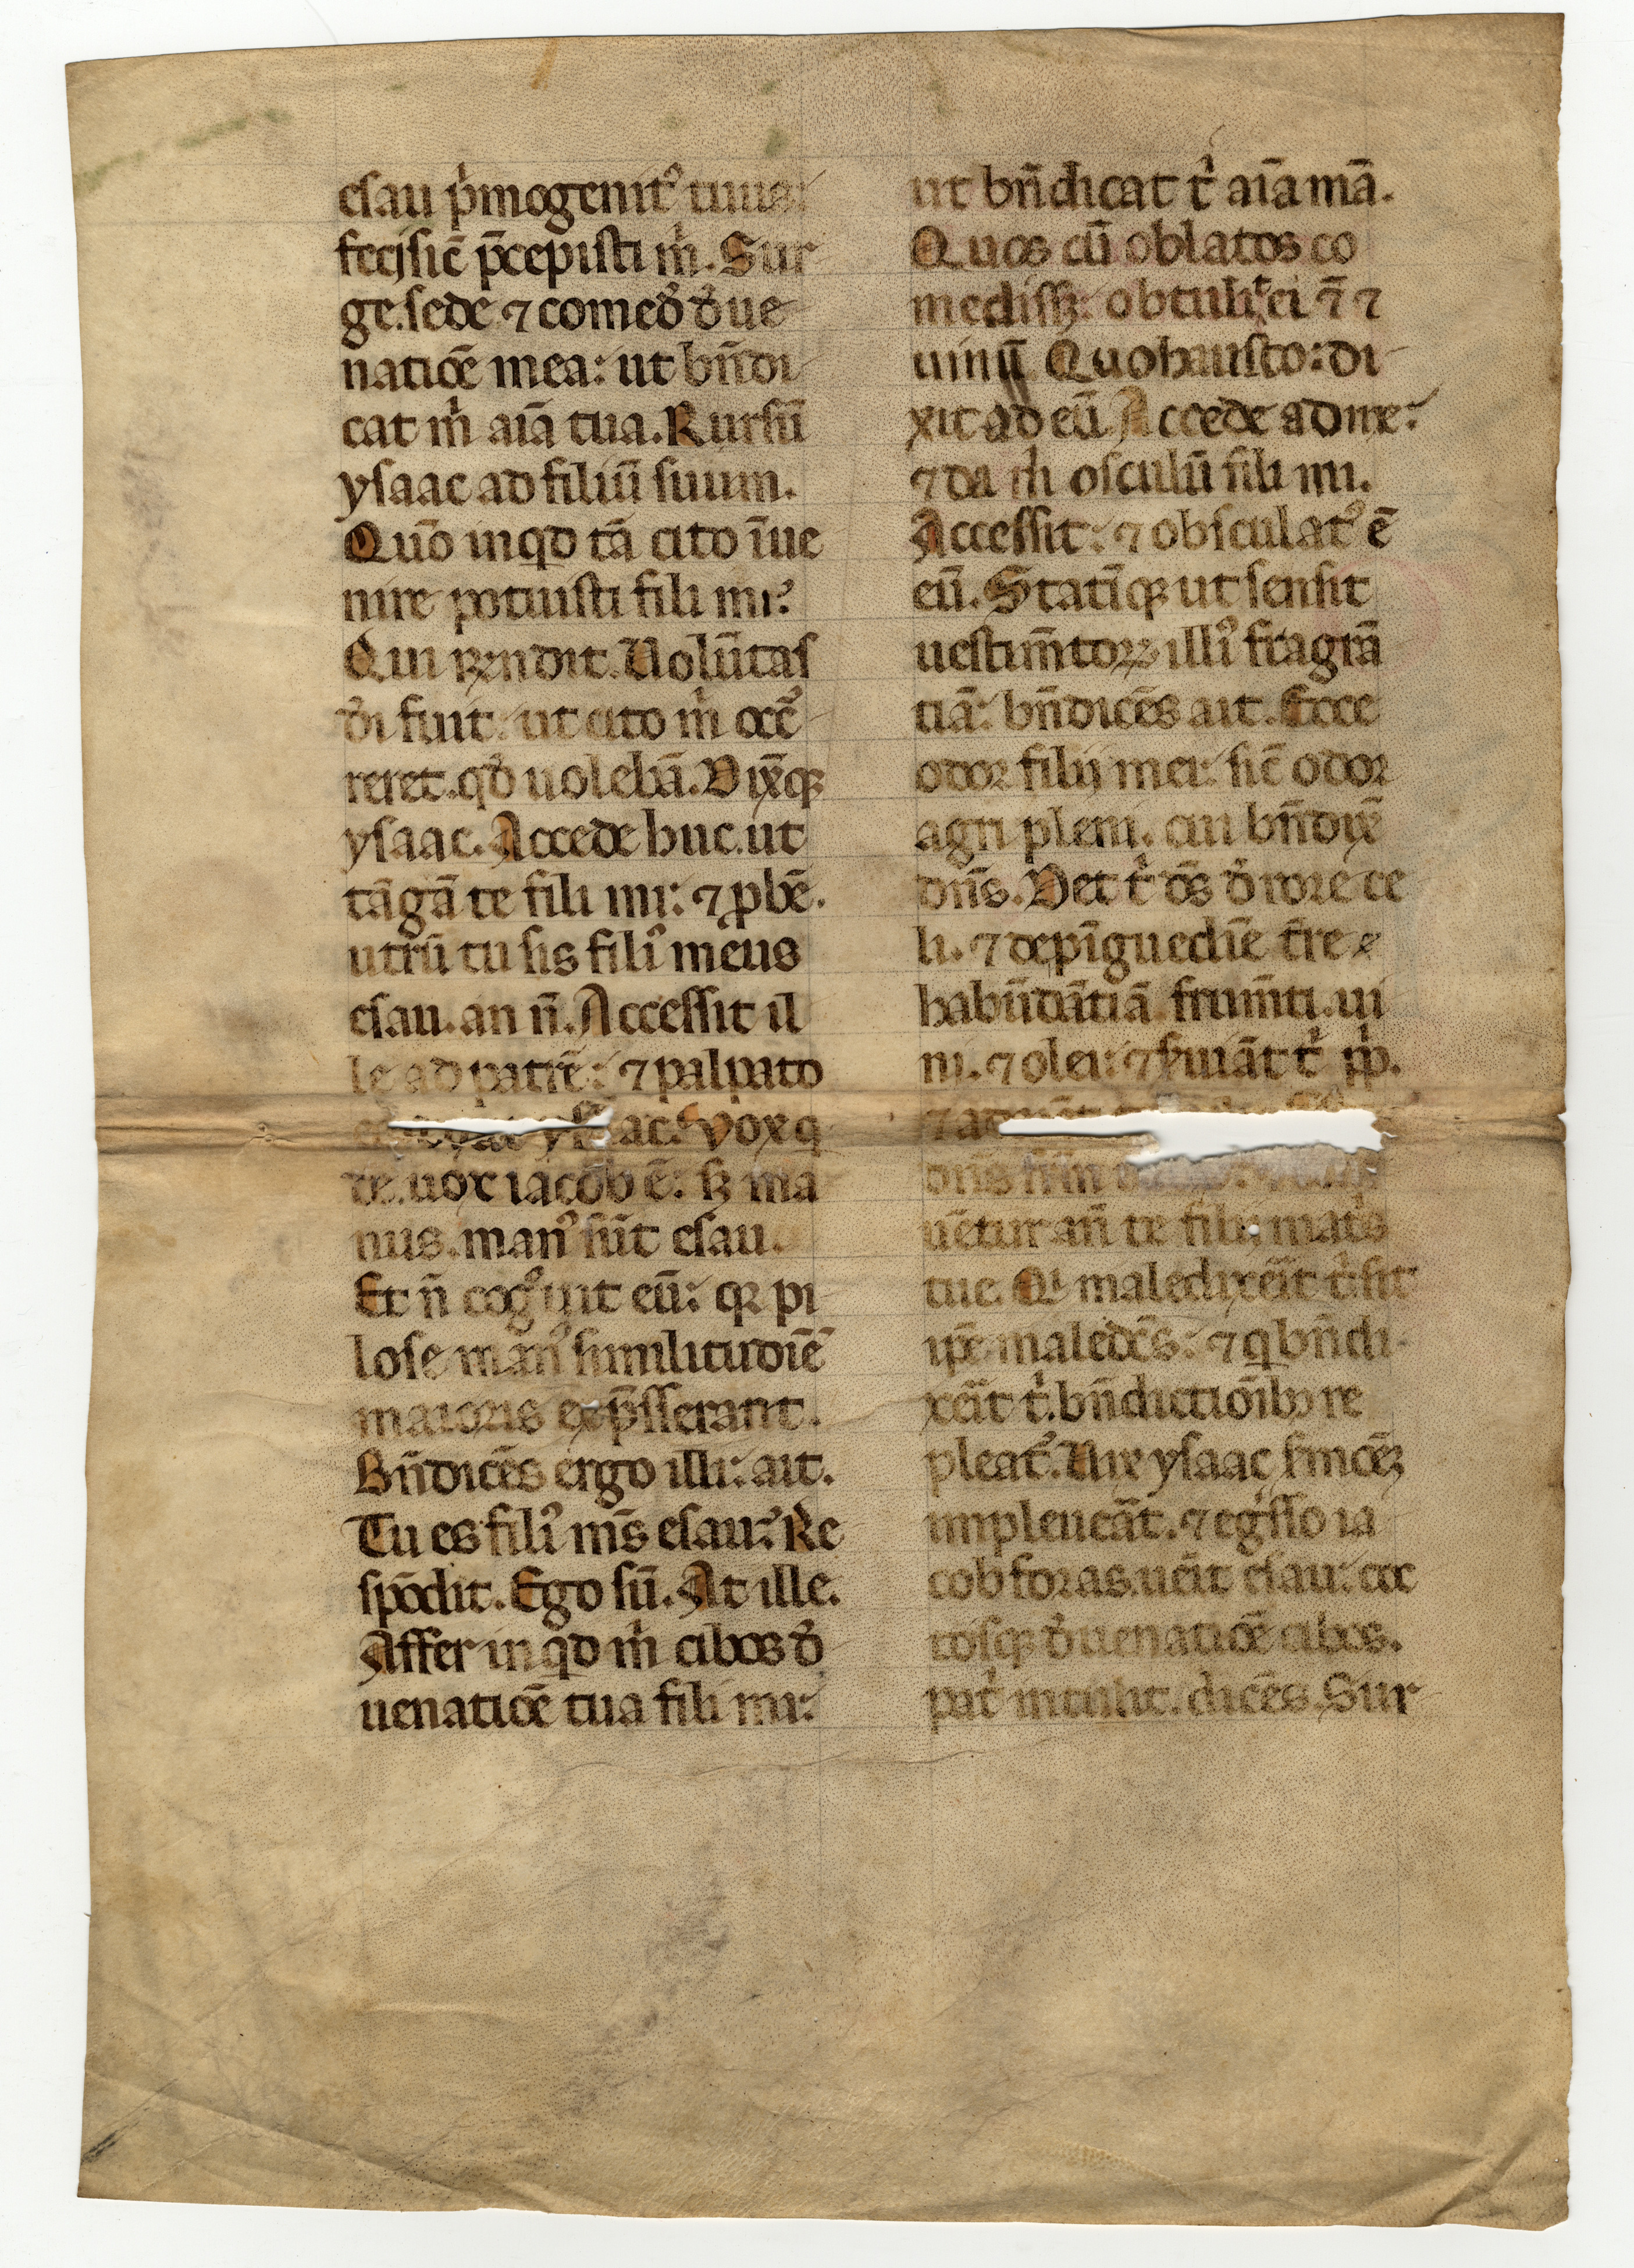 esau p̍mogenit᾽ tuus:
feci sic̄ p̄cepisti m̍. Sur
ge. sede ⁊ comed̄ d̄ ue
natiōe mea: ut bn̄di
cat m̍ aīa tua. Rursū
ysaac ad filiū suum.
Quō inqd tā cito īue
nire potuisti fili mi?
Qui rn̄dit. Uolūtas
dī fuit: ut cito m̍ occ᾽
reret. qd̄ uolebā. Dix̄qꝫ
ysaac. Accede huc. ut
tāgā te fili mi: ⁊ ꝓbē.
utrū tu sis fili᾽ meus
esau. an n̄. Accessit il
le ad patrē: ⁊ palpato
ysaac. Vox q
dē. uox iacob ē: sꝫ ma
nus. man᾽ sūt esau.
Et n̄ cog᾽uit eū: qꝛ pi
lose man᾽ similitudīē
maioris exp̄sserant.
Bn̄dicēs ergo illi: ait.
Tu es fili᾽ ms̄ esau? Re
spōdit. Ego sū. At ille.
Affer inqd m̍ cibos d̄
uenatiōe tua fili mi:
ut bn̄dicat t̍ aīa mā.
Quos cū oblatos co
medissꝫ: obtulit ei ēt ⁊
uinū. Quo hausto: di
xit ad eū. Accede ad me:
⁊ da m̍ osculū fili mi.
Accessit: ⁊ obsculat᾽ ē
eū. Statīqꝫ ut sensit
uestim̄toꝝ illi᾽ fragrā
tiā: bn̄dicēs ait. Ecce
odor filij mei: sic̄ odor
agri pleni. cui bn̄dix̄
dn̄s. Det t̍ ds̄ d̄ rore ce
li. ⁊ de pīguedīe t̄re
habūdātiā frum̄ti. ui
ni. ⁊ olei: ⁊ s̄uiāt t̍ pp̍.
⁊ ad
dn̄s fr̄m
uētur an̄ te filij mat̍s
tue. Q̍ maledixeīt t̍. sit
ip̄e maledc̄s: ⁊ q̍ bn̄di
xeīt t̍. bn̄dictiōibꝫ re
pleat᾽. Uix ysaac s̄mōeꝫ
impleuēat. ⁊ eg̍sso ia
cob foras. uēit esau: coc
tosqꝫ d̄ uenatiōe cibos.
pat̍ intulit. dicēs. Sur